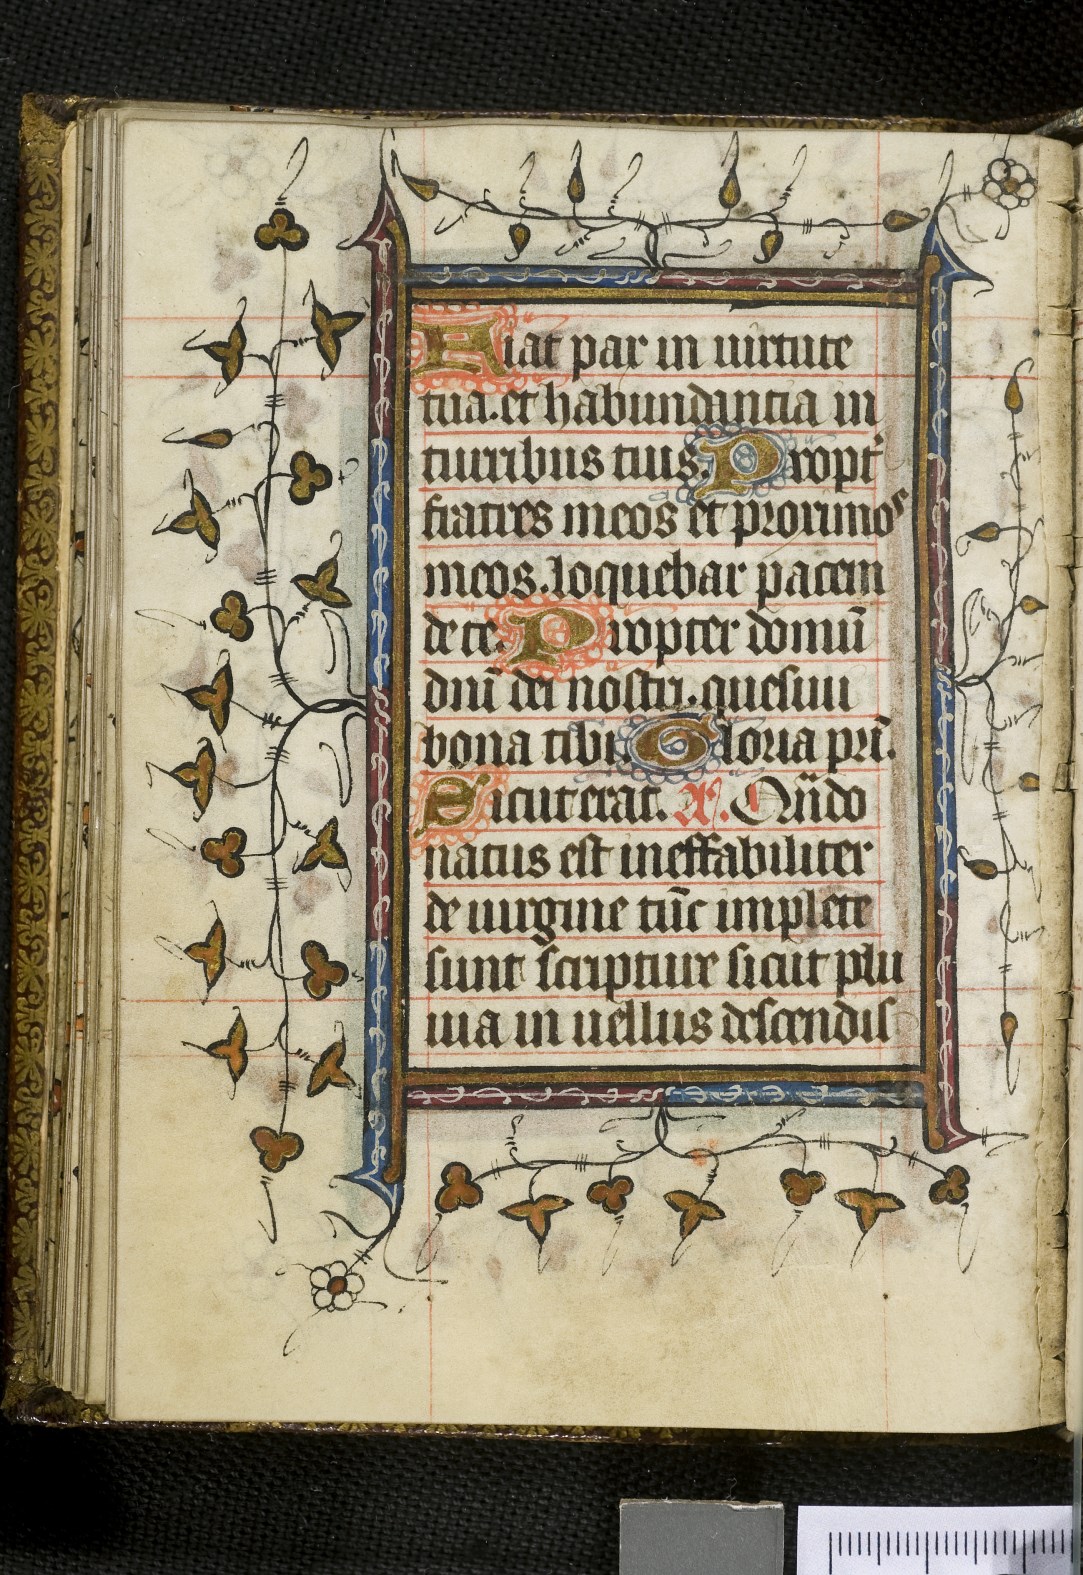 Fiat pax in uirtute
tua. et habundantia in
turribus tuis. Propt̾
fratres meos et proximos
meos. loquebar pacem
de te. Propter domū
dnī dei nostri. quesiui
bona tibi. Gloria pri̅.
Sicut erat. A. Qn̄do
natus est ineffabiliter
de uirgine tūc implete
sunt scripture sicut plu
uia in uellus descendis